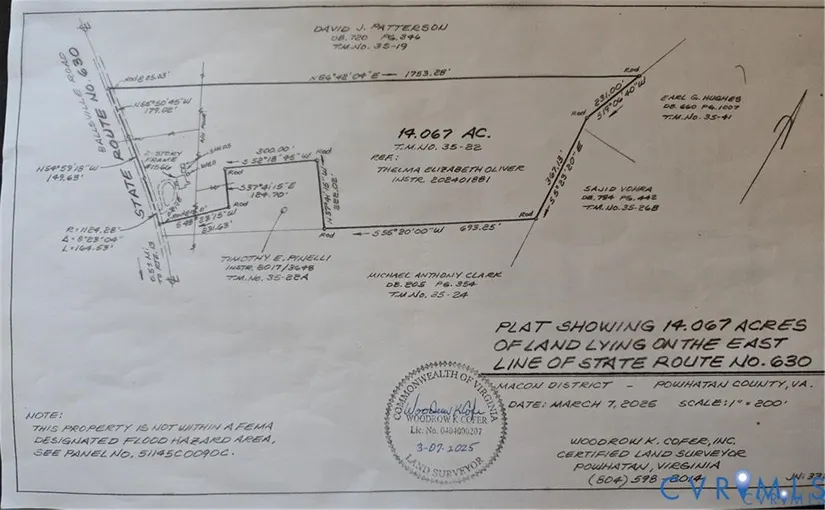 DAVID J. PATTERSON
DB. 720 PG. 346
T.M. NO. 35-19
BALLSVILLE ROAD
STATE ROUTE NO. 630
N66°42'04"E 1753.28'
Rod
Rod
231.00'
S19°04'40"W
EARL G. HUGHES
DB. 660 PG. 1007
T.M. NO. 35-41
N55°50'45"W
179.02'
N54°59'18"W
149.63'
2-STORY
FRAME
#1566
SHEDS
WELL
300.00'
S52°18'45"W
Rod
Rod
S37°41'15"E
124.70'
Rod
N37°41'15"W
222.02'
Rod
14.067 AC.
T.M. NO. 35-22
REF.:
THELMA ELIZABETH OLIVER
INSTR. 202401881
367.13'
S5°23'20"E
SAJID VOHRA
DB. 784 PG. 442
T.M. NO. 35-26B
Rod
S56°20'00"W 693.25'
231.63'
R=1124.28'
Δ=8°23'04"
L=164.53'
TIMOTHY E. PINELLI
INSTR. 2017/3648
T.M. NO. 35-22A
MICHAEL ANTHONY CLARK
DB. 205 PG. 354
T.M. NO. 35-24
PLAT SHOWING 14.067 ACRES
OF LAND LYING ON THE EAST
LINE OF STATE ROUTE NO. 630
MACON DISTRICT - POWHATAN COUNTY, VA.
DATE: MARCH 7, 2025 SCALE: 1" = 200'
COMMONWEALTH OF VIRGINIA
Woodrow K Cofer
WOODROW K COFER
Lic. No. 0404000207
3-07-2025
LAND SURVEYOR
NOTE:
THIS PROPERTY IS NOT WITHIN A FEMA
DESIGNATED FLOOD HAZARD AREA,
SEE PANEL NO. 51145C0090C.
WOODROW K. COFER, INC.
CERTIFIED LAND SURVEYOR
POWHATAN, VIRGINIA
(804) 598-8014
CVRMLS
CVRMLS